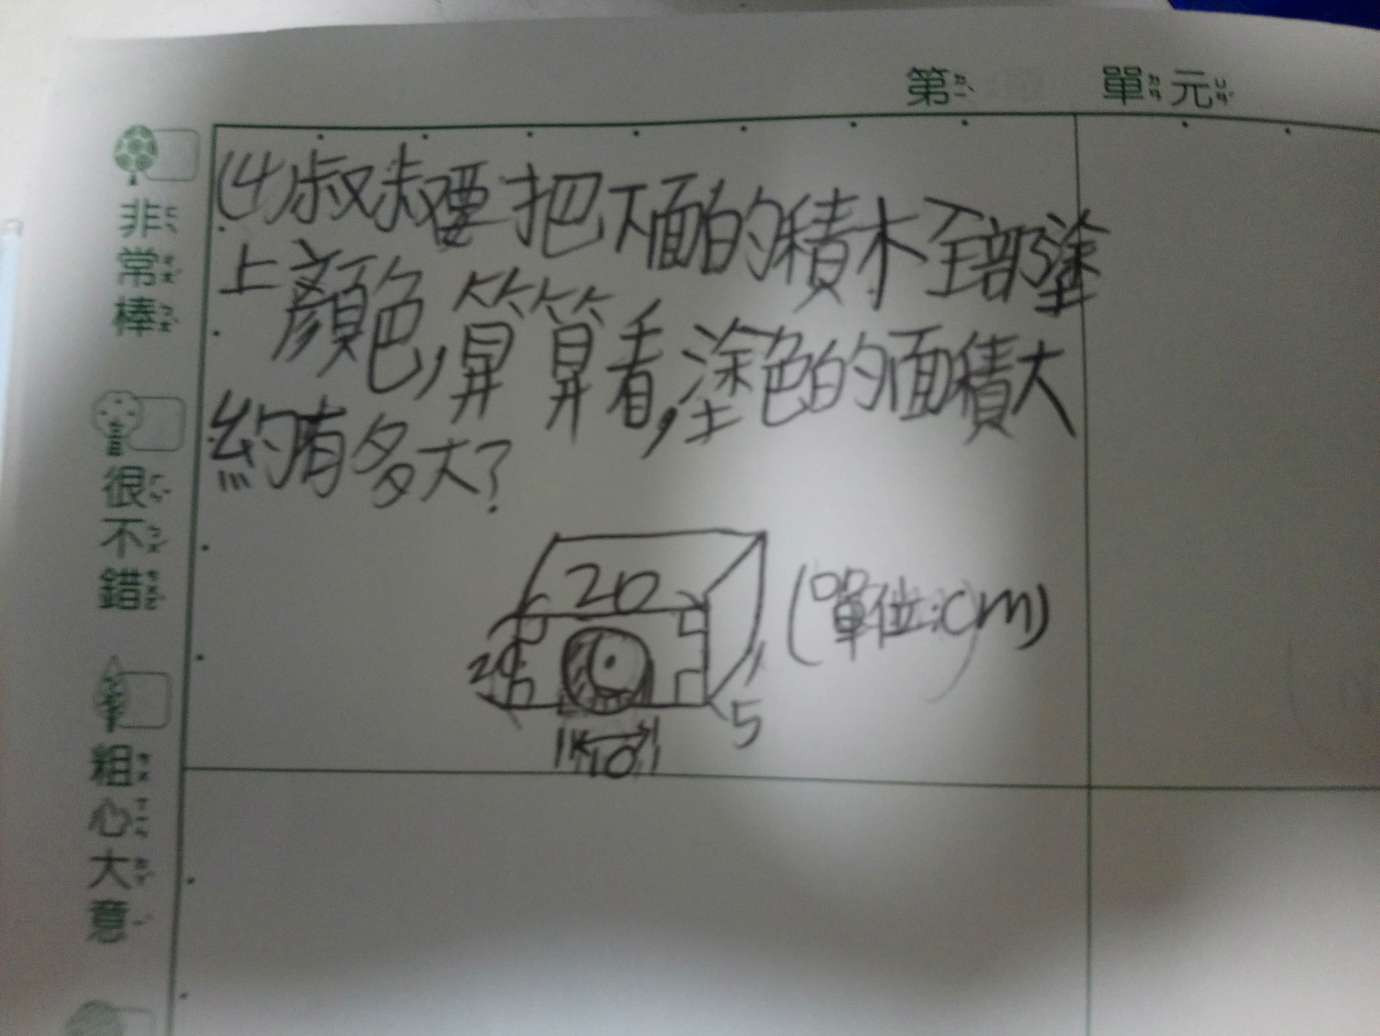 第 單元
非常棒
很不錯
粗心大意
(4)叔叔要把下面的積木全部塗
上顏色,算算看,塗色的面積大
約有多大?
20
20
(單位:cm)
5
10